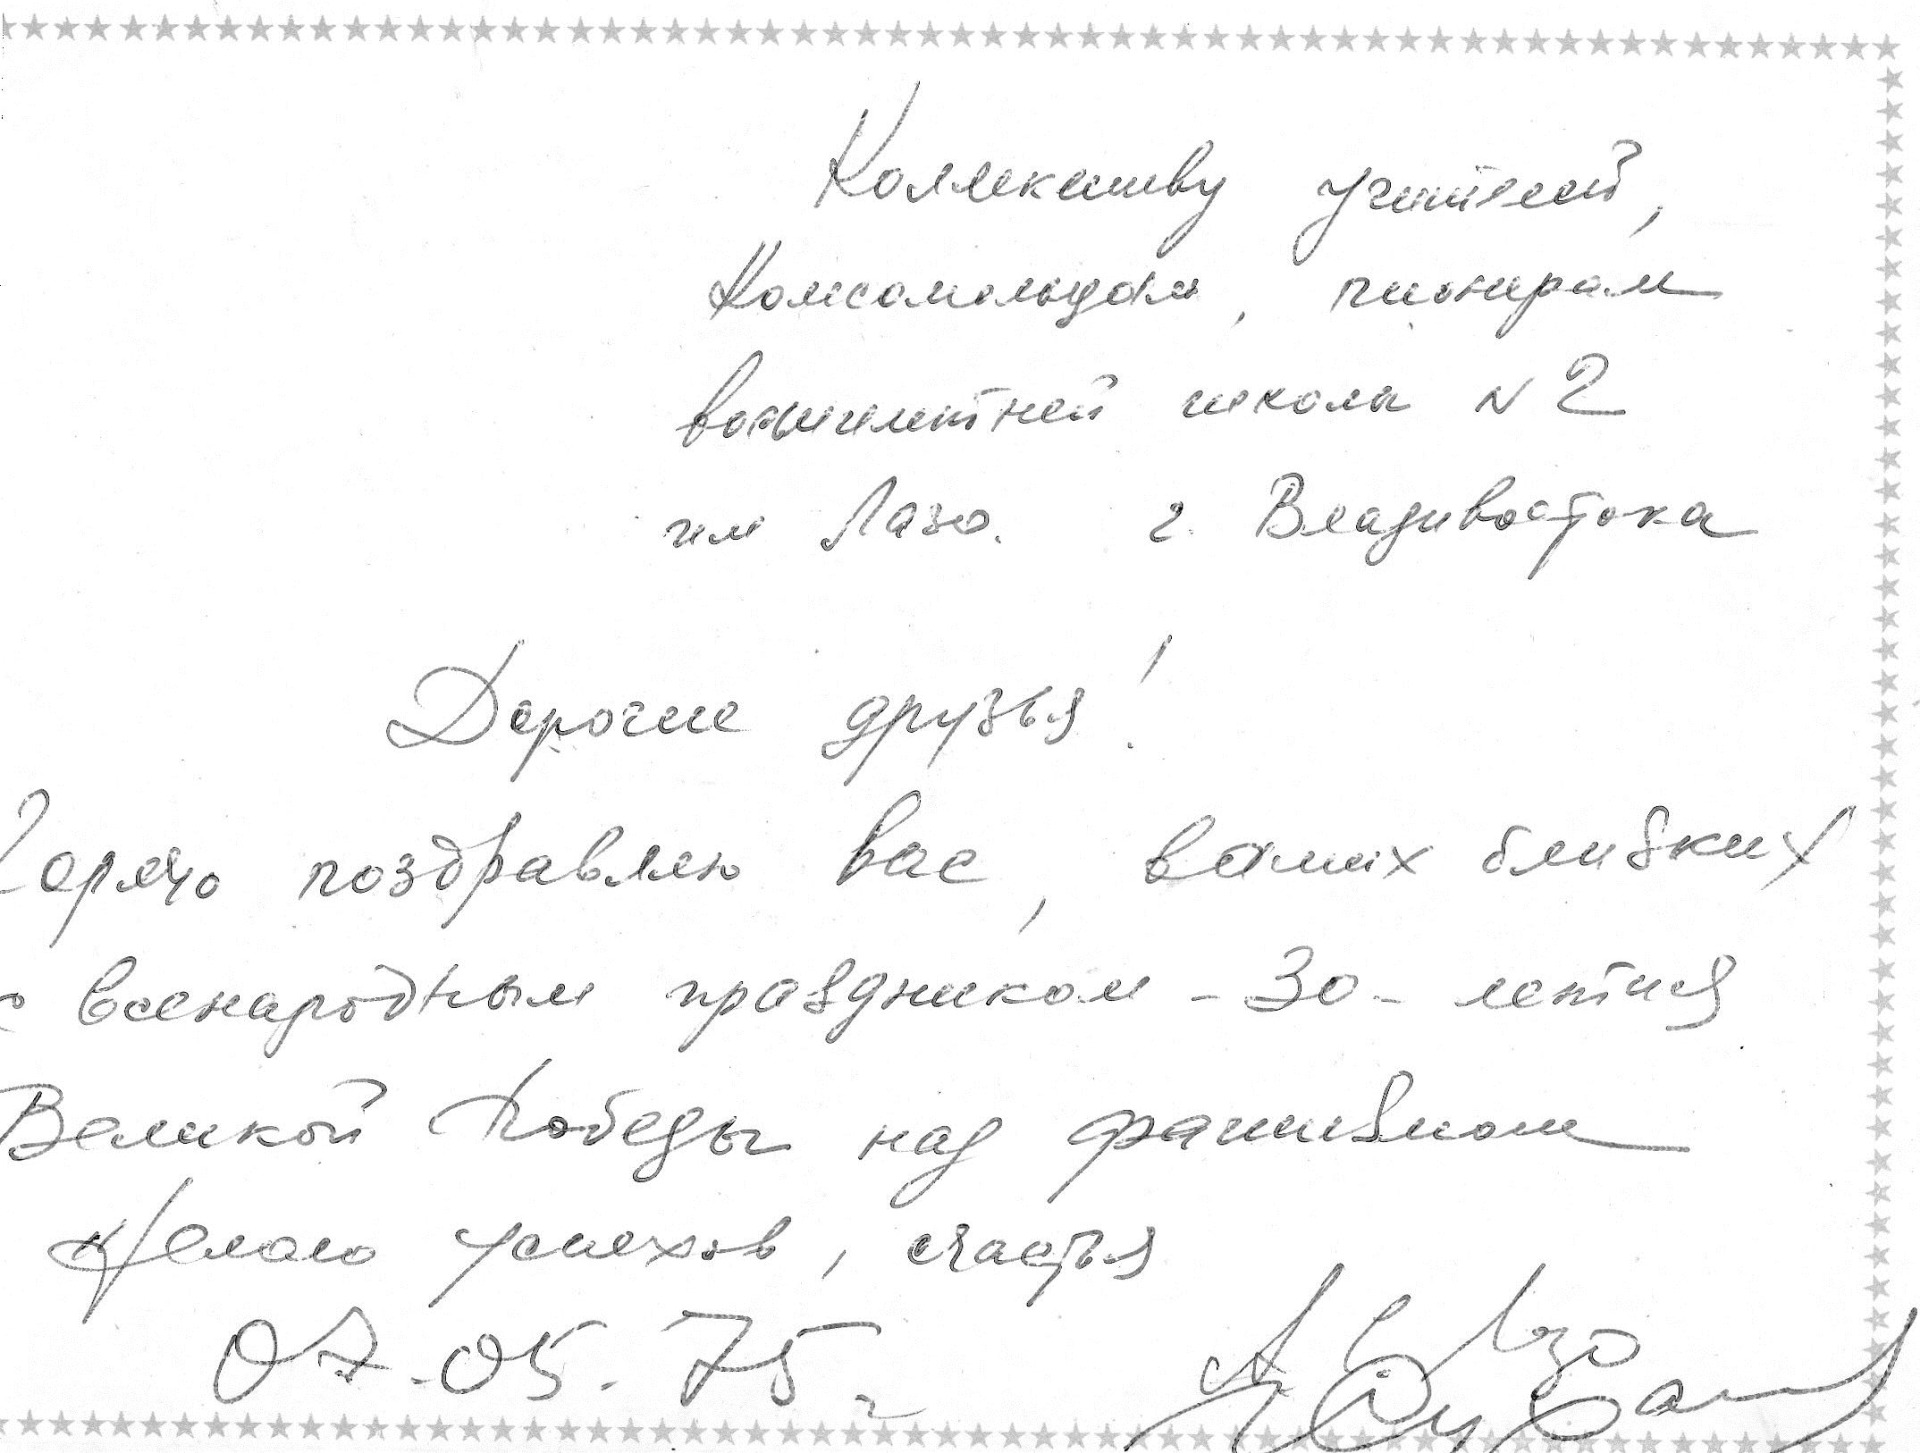 Коллективу учителей,
Комсомольцам, пионерам
восьмилетней школы N 2
им Лазо. г. Владивостока
Дорогие друзья!
Горячо поздравляю вас, ваших близких
с всенародным праздником - 30 - летия
Великой Победы над фашизмом
Желаю успехов, счастья
07.05.75 г
А С Лазо